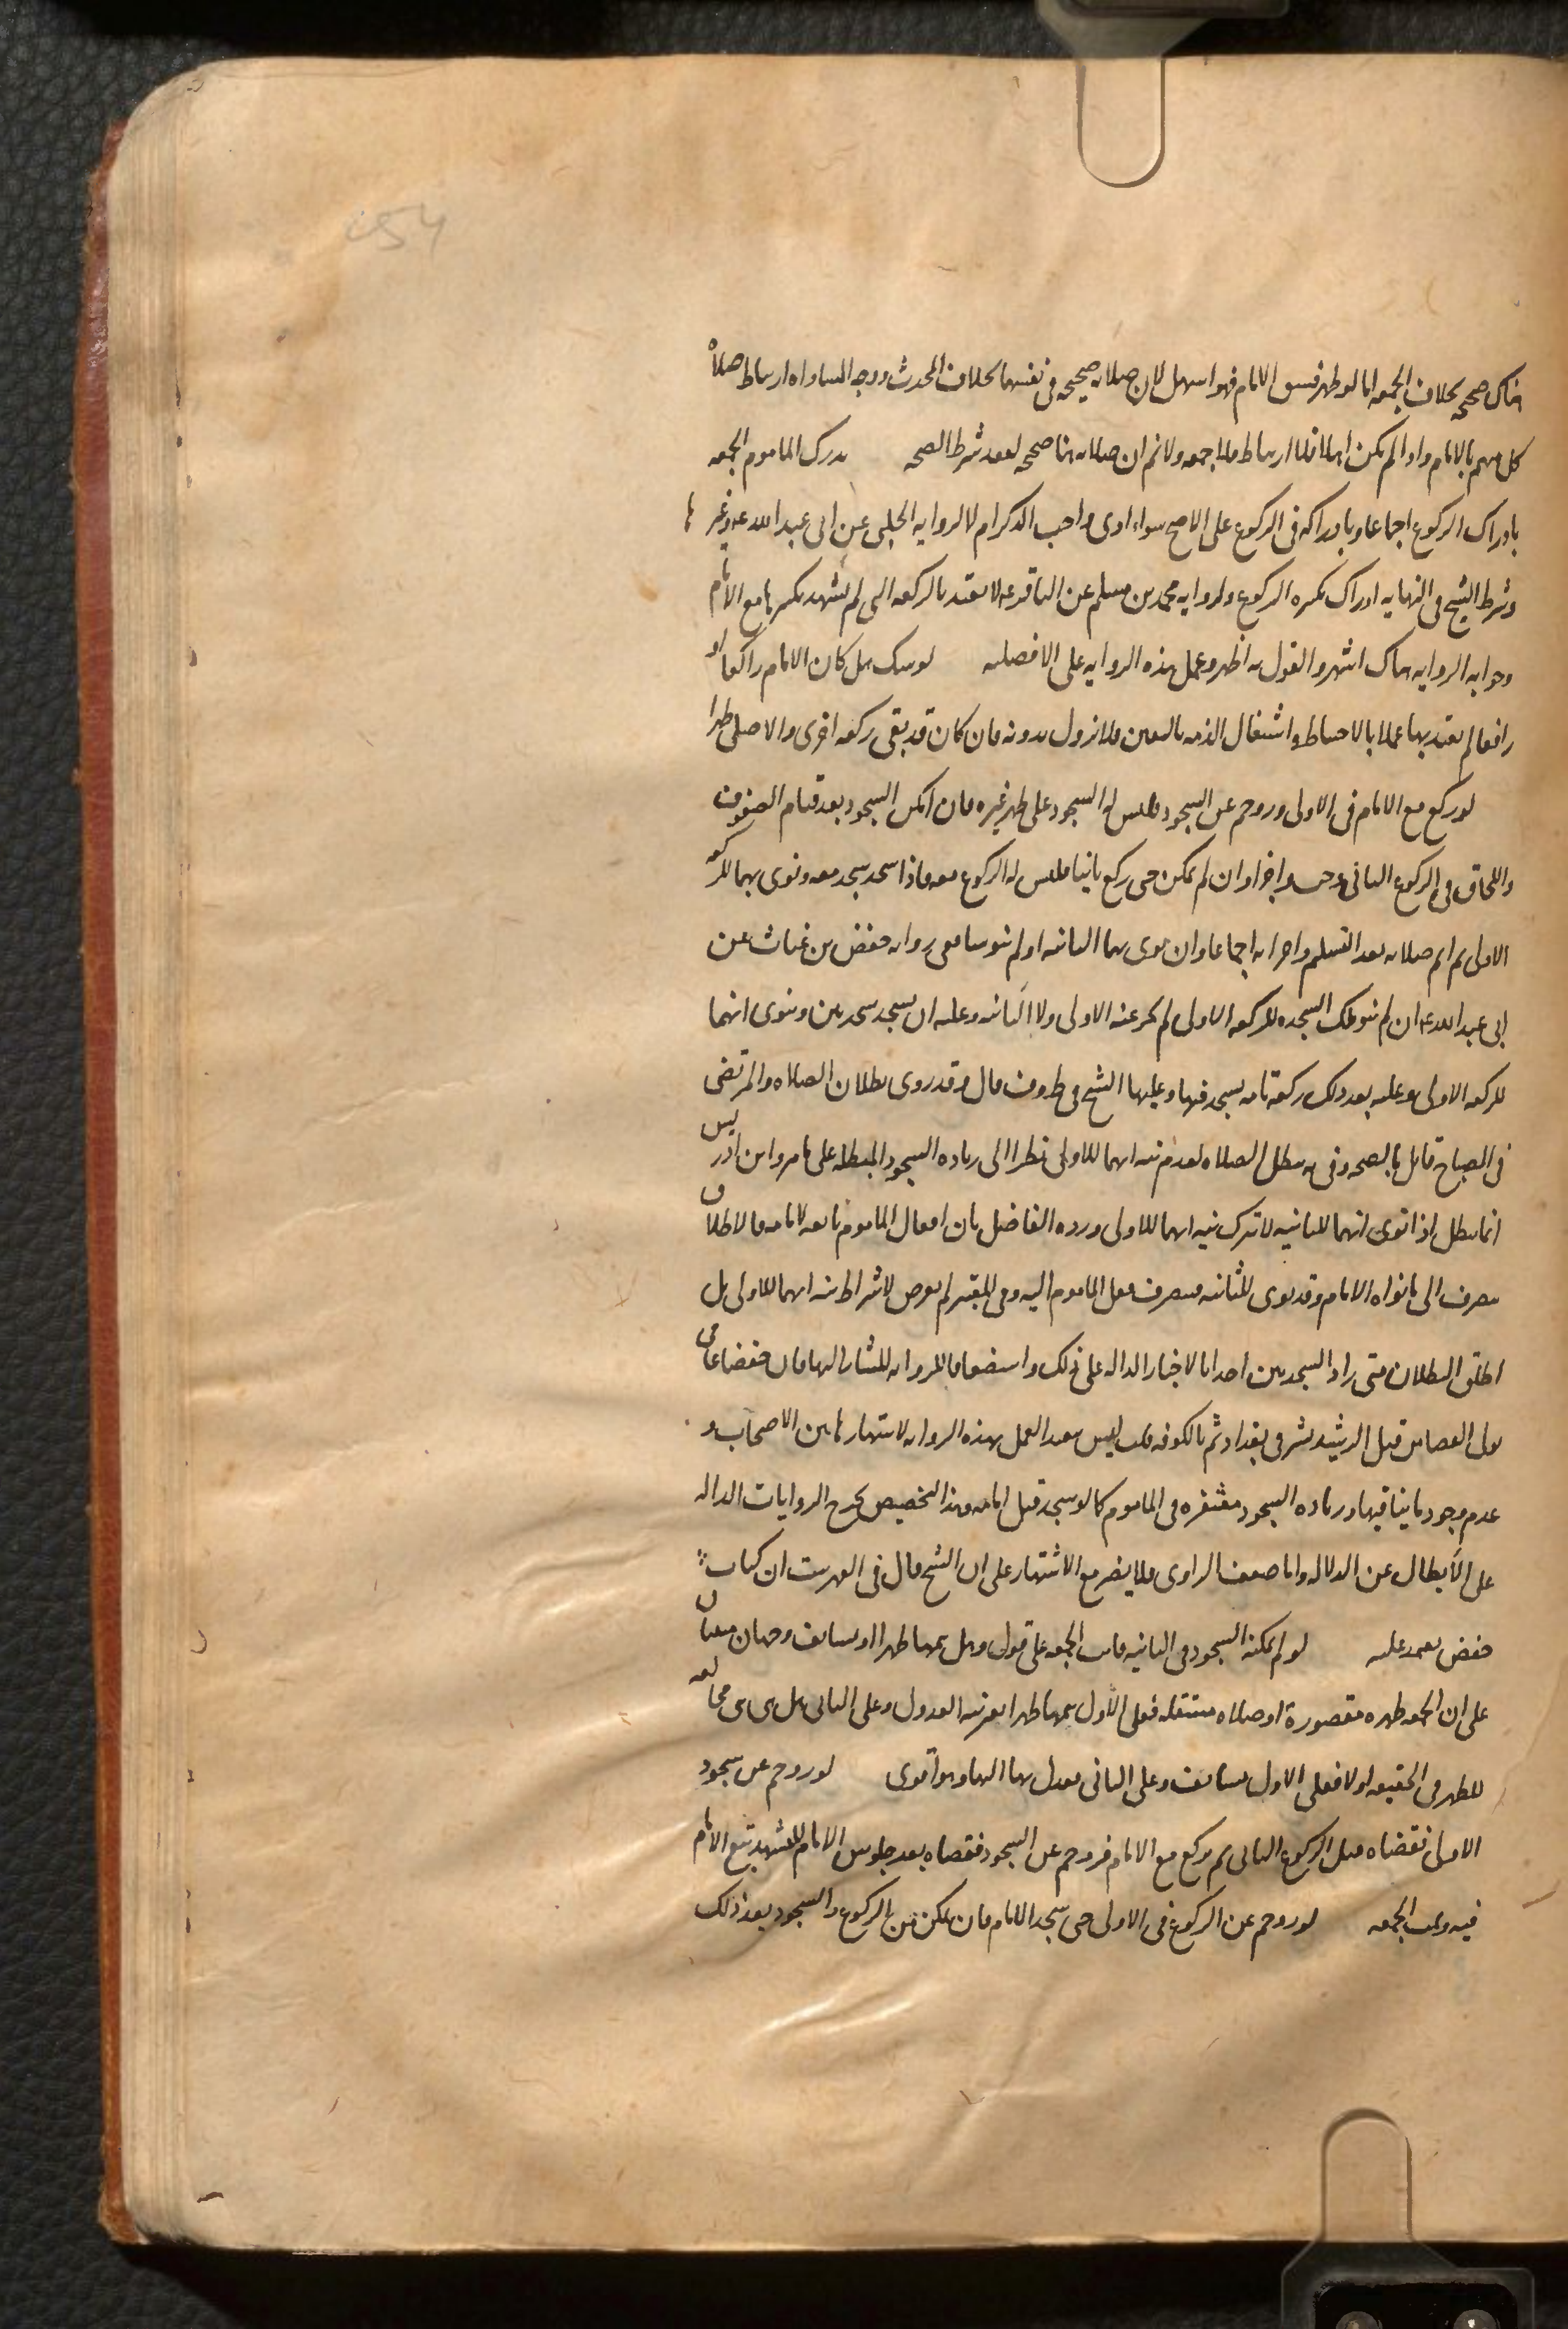 هناك صحيحه بخلاف الجمعه اما لو ظهر فسق الامام فهو اسهل لان صلاته صحيحه فى نفسها بخلاف المحدث ووجه المساواه ارتباط صلاة
كل منهم بالامام واذا لم يكن اهلا فلا ارتباط فلا جمعه ولا نم ان صلاته هنا صحيحه لفقد شرط الصحه يدرك الماموم الجمعه
بادراك الركوع اجماعا وبادراكه فى الركوع على الاصح سواء ادى واجب الذكر ام لا لروايه الحلبى عن ابى عبدالله ع وغيرها
وشرط الشيخ فى النهايه ادراك تكبيره الركوع ولروايه محمد بن مسلم عن الباقر ع لا تعتد بالركعه التى لم تشهد تكبيرها مع الامام
وجوابه الروايه هناك اشهر والقول به اظهر وتحمل هذه الروايه على الافضليه لو شك هل كان الامام راكعا او
رافعا لم يعتد بها عملا بالاحتياط واشتغال الذمه باليقين فلا تزول بدونه فان كان قد بقى ركعه اخرى والا صلى ظهرا
لو ركع مع الامام فى الاولى وزوحم عن السجود فليس له السجود على ظهر غيره فان امكن السجود بعد قيام الصفوف
واللحاق فى الركوع الثانى وجب واجزا وان لم يمكن حتى ركع ثانيا فليس له الركوع معه فاذا سجد سجد معه ونوى بهما للركعه
الاولى ثم اتم صلاته بعد التسليم واجزاته اجماعا وان نوى بهما الثانيه او لم ينو شيا ففى روايه حفص بن غياث عن
ابى عبدالله ع ان لم ينو تلك السجده للركعه الاولى لم تجز عنه الاولى ولا الثانيه وعليه ان يسجد سجدتين وينوى انهما
للركعه الاولى وعليه بعد ذلك ركعه تامه يسجد فيها وعليها الشيخ فى ط وف قال وقد روى بطلان الصلاه والمرتضى
فى المصباح قائل بالصحه وفى يه تبطل الصلاه لعدم نيه انهما للاولى نظرا الى زياده السجود المبطله على ما مر وابن ادريس
انما تبطل اذا نوى انهما للثانيه لا بترك نيه انهما للاولى ورده الفاضل بان افعال الماموم تابعه لامامه فالاطلاق
ينصرف الى ما نواه الامام وقد نوى للثانيه فينصرف فعل الماموم اليه وفى المعتبر لم يتعرض لاشتراط نيه انهما للاولى بل
اطلق البطلان متى زاد السجدتين اخذا بالاخبار الداله على ذلك واستضعافا للروايه المشار اليها فان حفصا عامى
تولى القضا من قبل الرشيد بشرقى بغداد ثم بالكوفه قلت ليس ببعيد العمل بهذه الروايه لاشتهارها بين الاصحاب و
عدم وجود ما ينافيها وزياده السجود مغتفره فى الماموم كما لو سجد قبل امامه وهذا التخصيص يخرج الروايات الداله
على الابطال عن الدلاله واما ضعف الراوى فلا يضر مع الاشتهار على ان الشيخ قال فى الفهرست ان كتاب
حفص يعتمد عليه لو لم يمكنه السجود فى الثانيه فاتت الجمعه على قول وهل يتمها ظهرا او يستانف وجهان مبنيان
على ان الجمعه ظهر مقصورة او صلاه مستقله فعلى الاول يتمها ظهرا بغير نيه العدول وعلى الثانى هل هى مخالفه
للظهر فى الحقيقه او لا فعلى الاول يستانف وعلى الثانى يعدل بها اليها وهو اقوى لو زوحم عن سجود
الاولى فقضاه قبل الركوع الثانى ثم ركع مع الامام فزوحم عن السجود فقضاه بعد جلوس الامام للتشهد تبع الامام
فيه وتمت الجمعه لو زوحم عن الركوع فى الاولى حتى سجد الامام فان تمكن من الركوع والسجود بعد ذلك